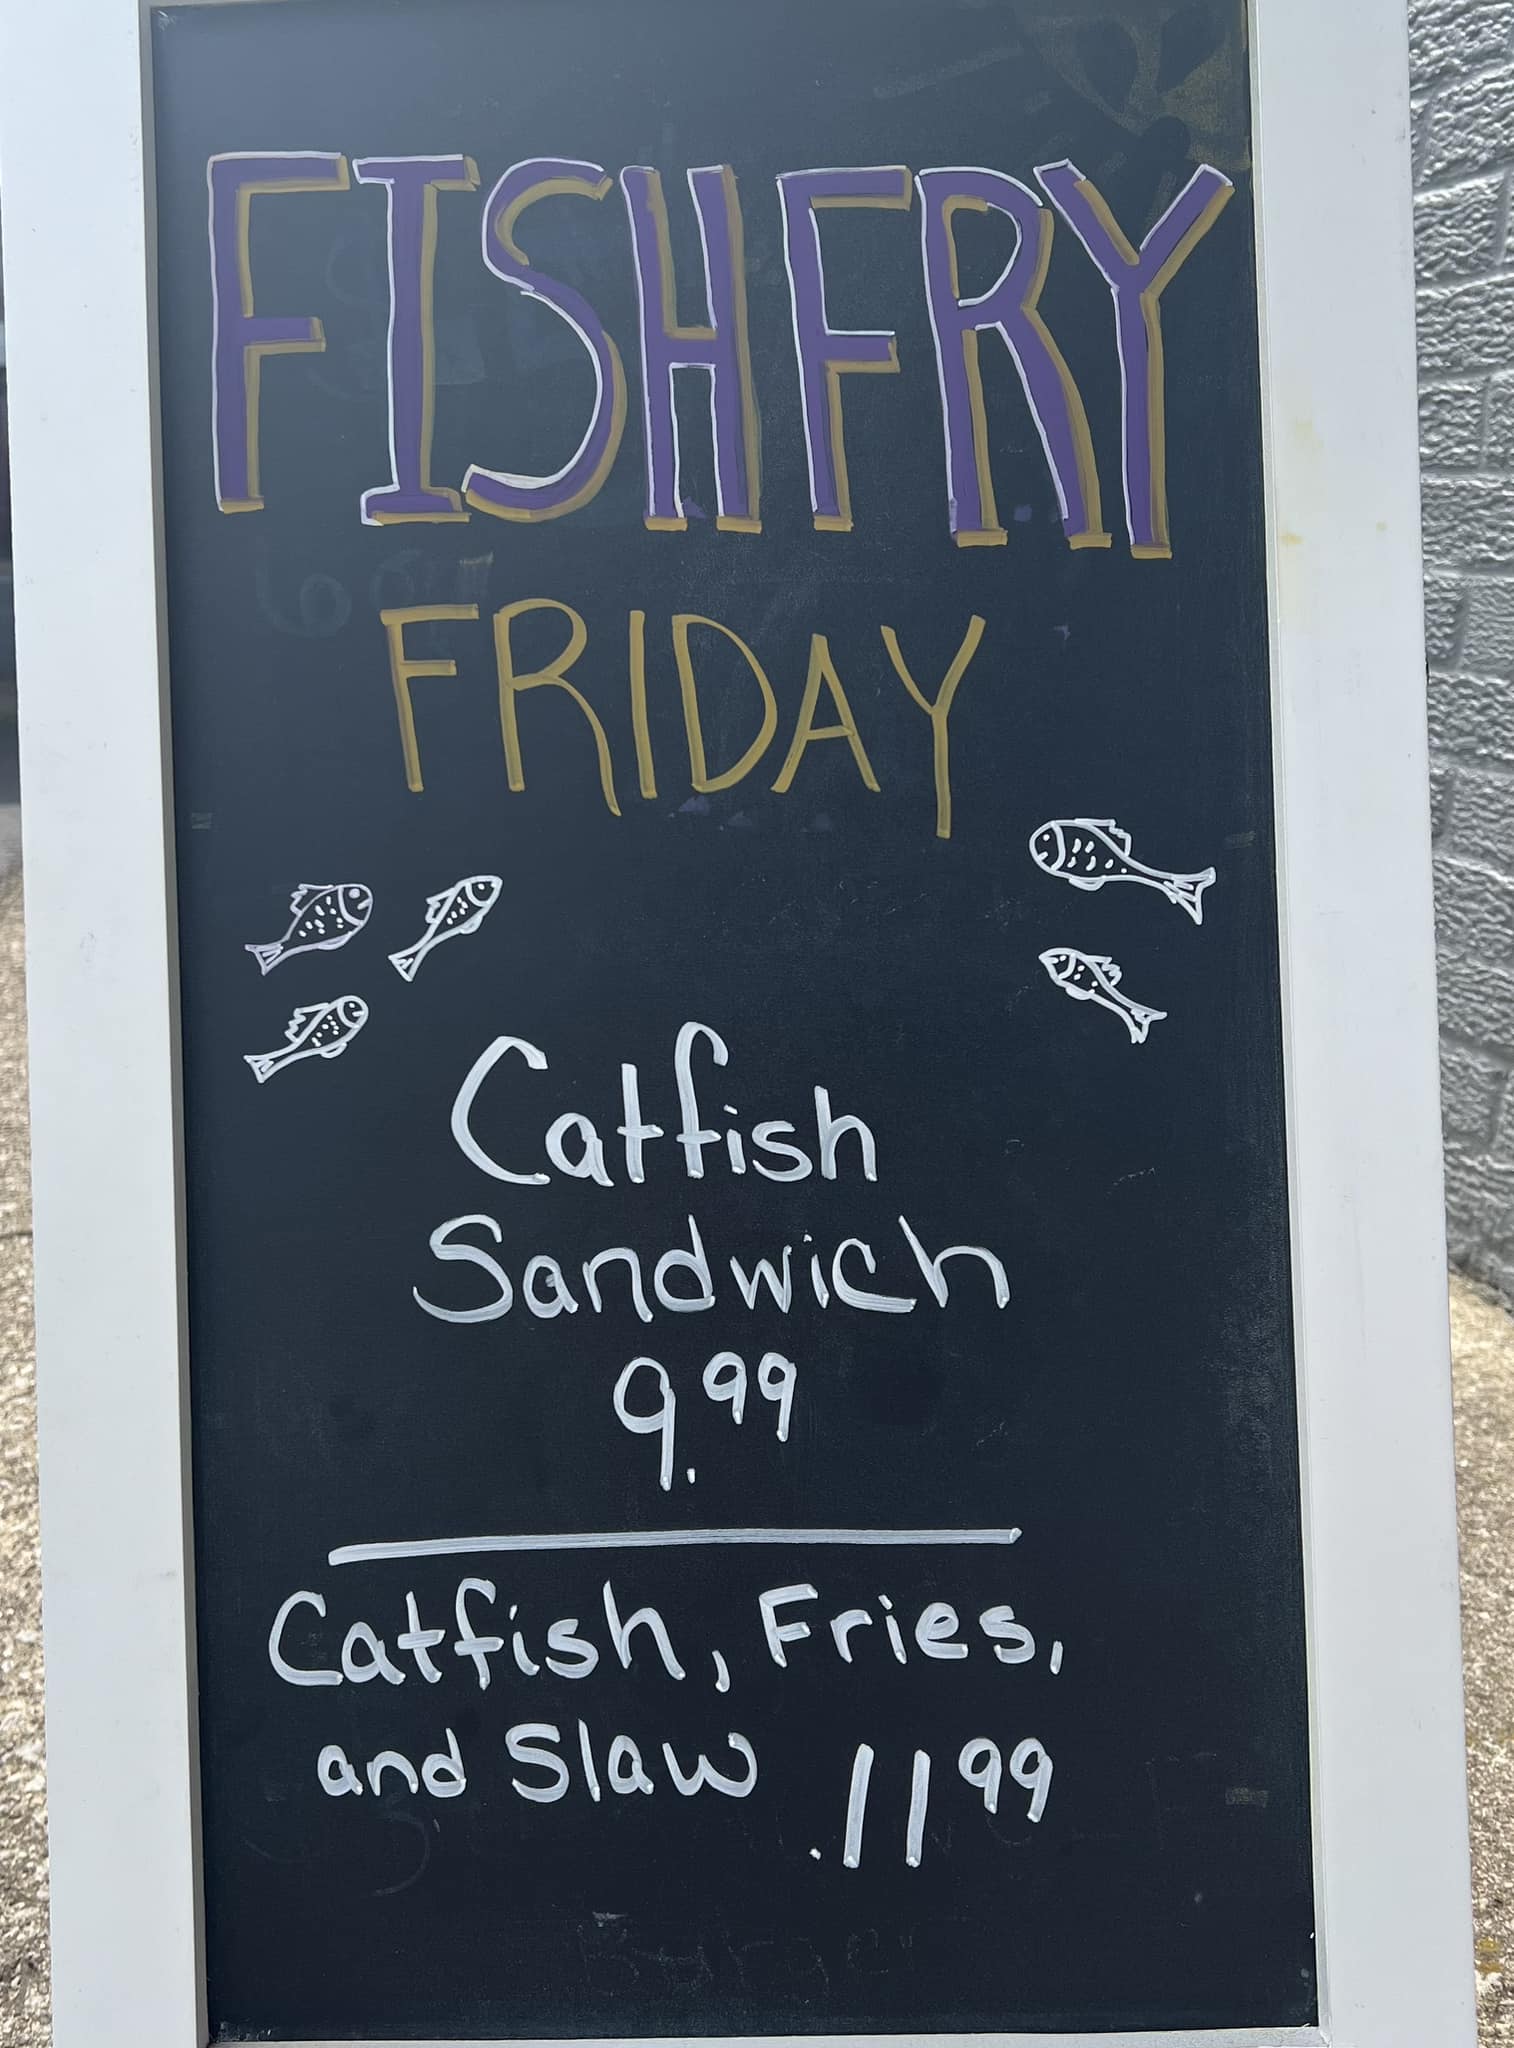 FISH FRY
FRIDAY
Catfish
Sandwich
9.99
Catfish, Fries,
and Slaw .11 99
Burger